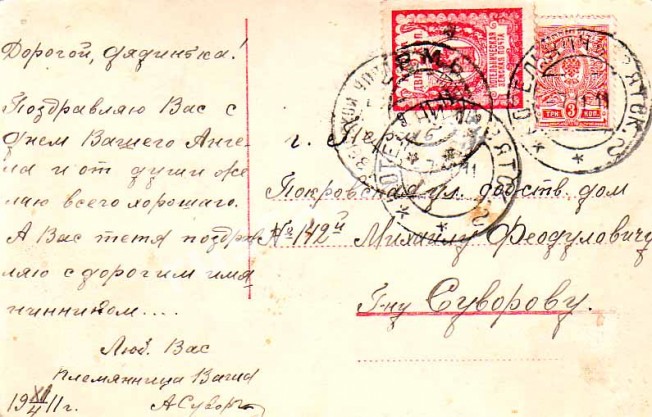 Дорогой, дядинька!
Поздравляю Вас с
днем Вашего Анге-
ла и от души же-
лаю всего хорошаго.
А Вас тетя поздрв
ляю с дорогим имя
нинником....
Люб. Вас
племянница Ваша
19 XI/4 11 г. АСувор
г.
Покровская ул. собств. дом
№ 142й Михаилу Феодуловичу
Г-ну Суворову.
ТРИ 3 КОП.